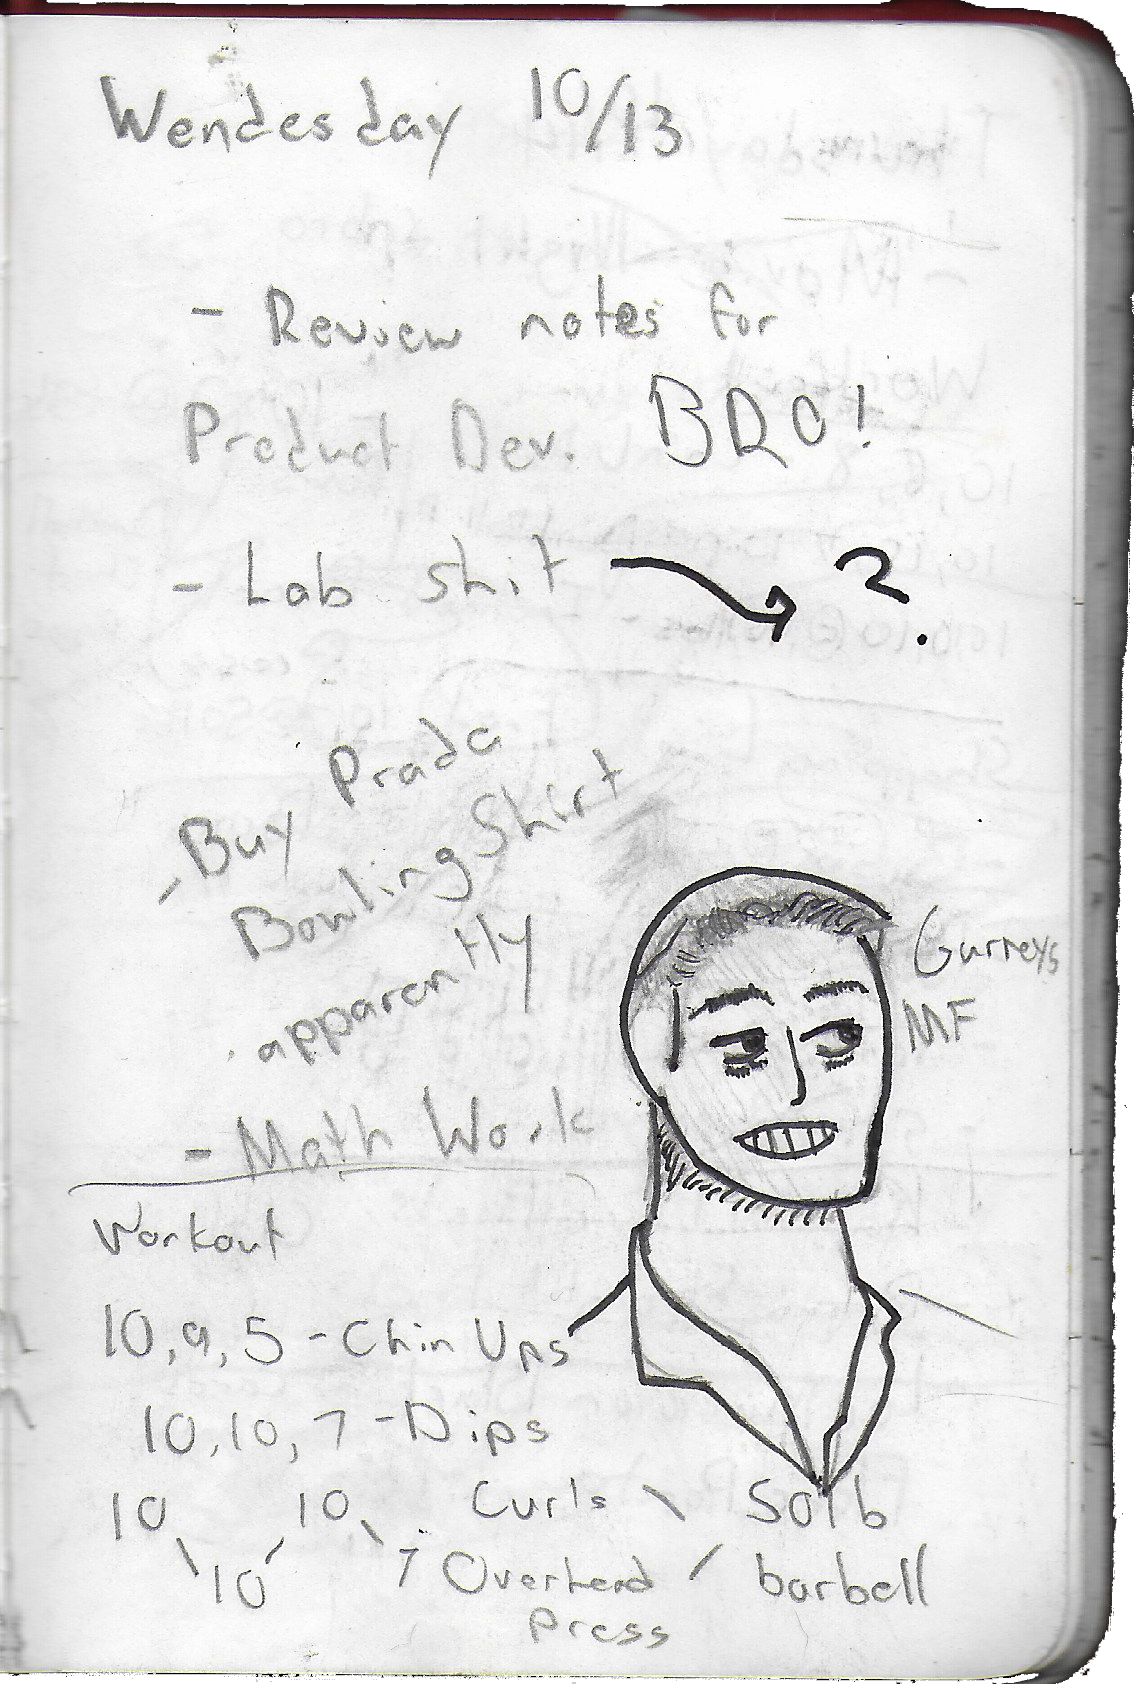 Wendesday 10/13
- Review notes for
Product Dev. BRO!
- Lab shit → ?
- Buy Prada
Bowling Shirt
apparently
- Math Work
Gurneys
MF
Workout
10, 9, 5 - Chin Ups
10, 10, 7 - Dips
10 \ 10 / 10 \ 7
Curls \ 50lb
Overhead / barbell
Press